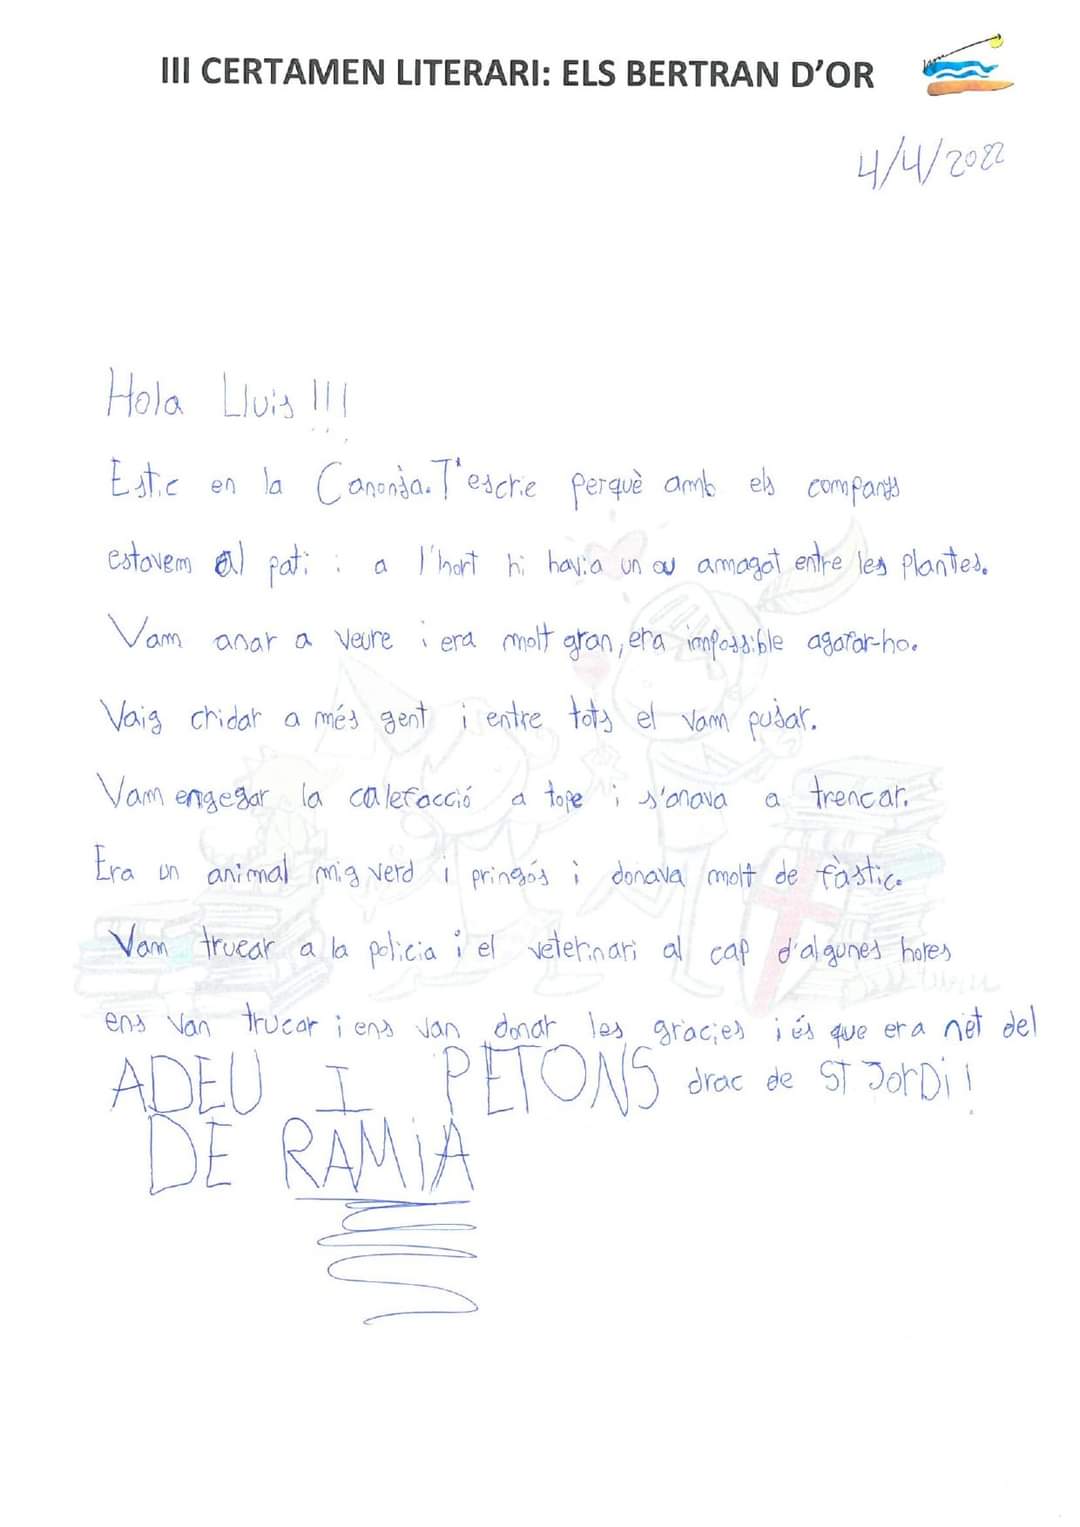 III CERTAMEN LITERARI: ELS BERTRAN D'OR
4/4/2022
Hola Lluis !!!
Estic en la Canonja. T'escric perquè amb els companys
estavem al pati i a l'hort hi havia un ou amagat entre les plantes.
Vam anar a veure i era molt gran, era impossible agafar-ho.
Vaig cridar a més gent i entre tots el vam pujar.
Vam engegar la calefacció a tope i s'anava a trencar.
Era un animal mig verd i pringós i donava molt de fàstic.
Vam trucar a la policia i el veterinari al cap d'algunes hores
ens van trucar i ens van donar les gracies i és que era nét del
drac de ST JorDi!
ADEU I PETONS
DE RAMIA